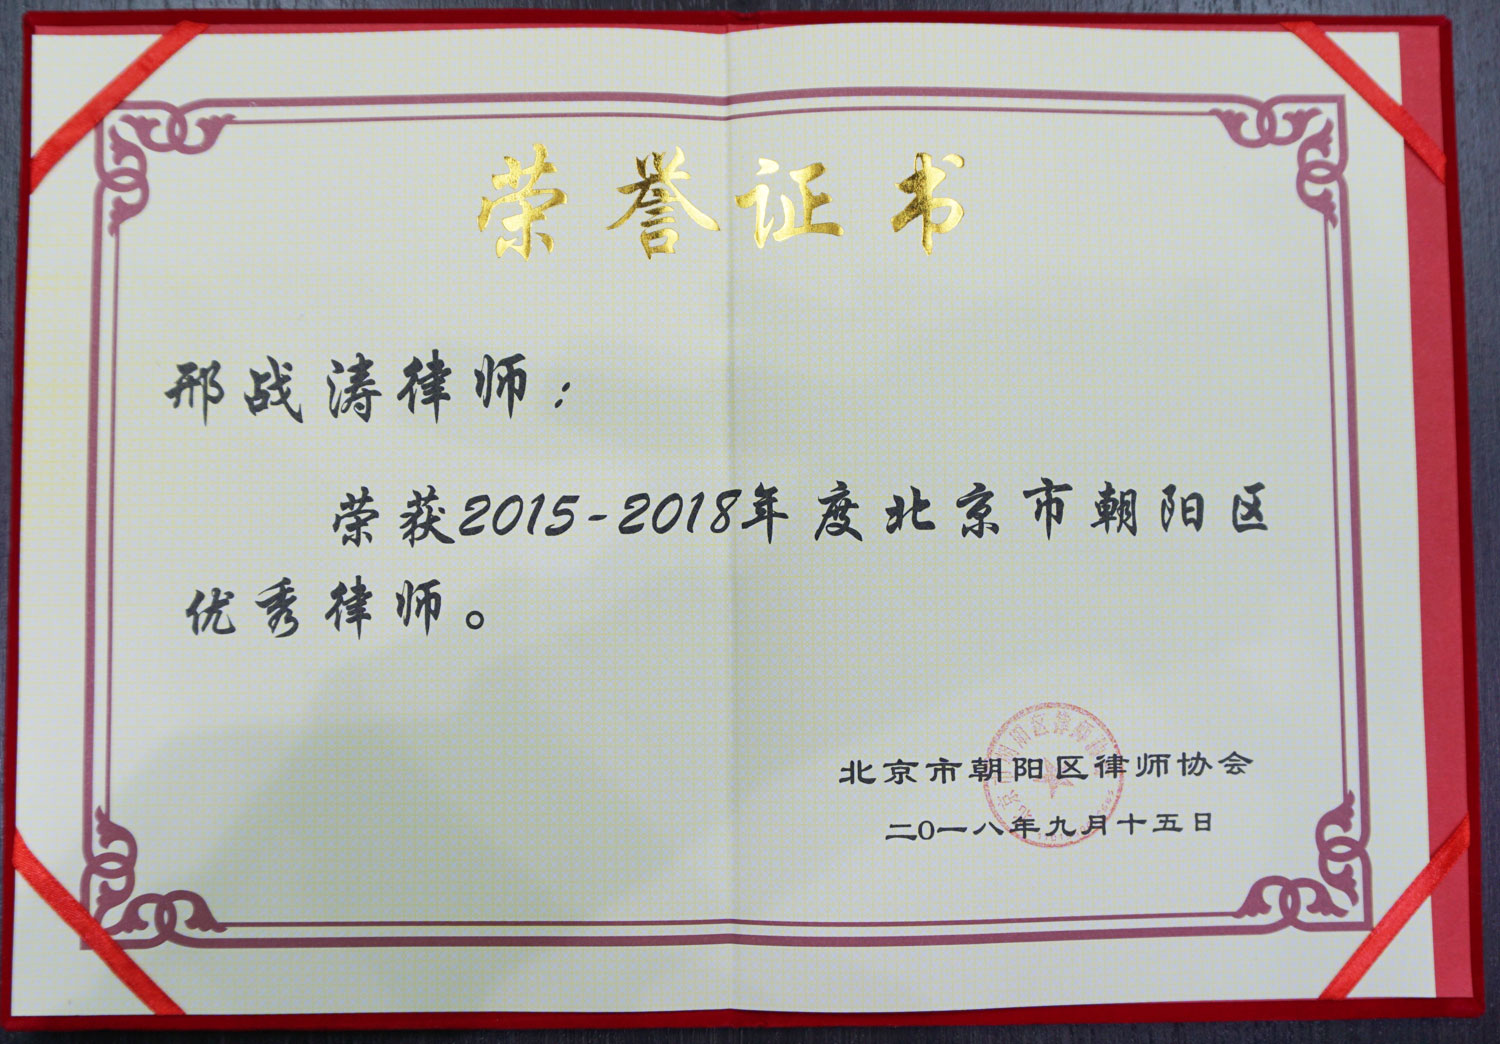 荣誉证书
邢战涛律师：
荣获2015-2018年度北京市朝阳区
优秀律师。
北京市朝阳区律师协会
二〇一八年九月十五日